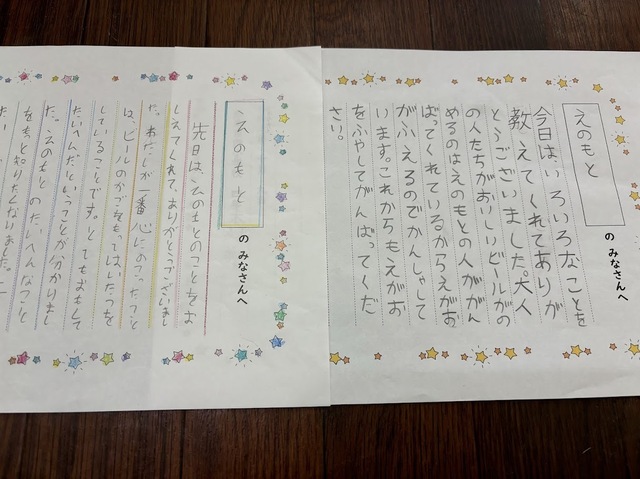 えのもと
の みなさんへ
今日は、いろいろなことを
教えてくれてありが
とうございました。大人
の人たちがおいしいビールがの
めるのはえのもとの人ががん
ばってくれているからえがお
がふえるのでかんしゃして
います。これからもえがお
をふやしてがんばってくだ
さい。
えのもと
の みなさんへ
先日は、えのもとのことをお
しえてくれて、ありがとうございまし
た。わたしが一番心にのこったこと
は、ビールのかごをもってはいたつを
していることです。とてもおもくて
たいへんだということが分かりまし
た。えのもと のたいへんなこと
をもっと知りたくなりました。